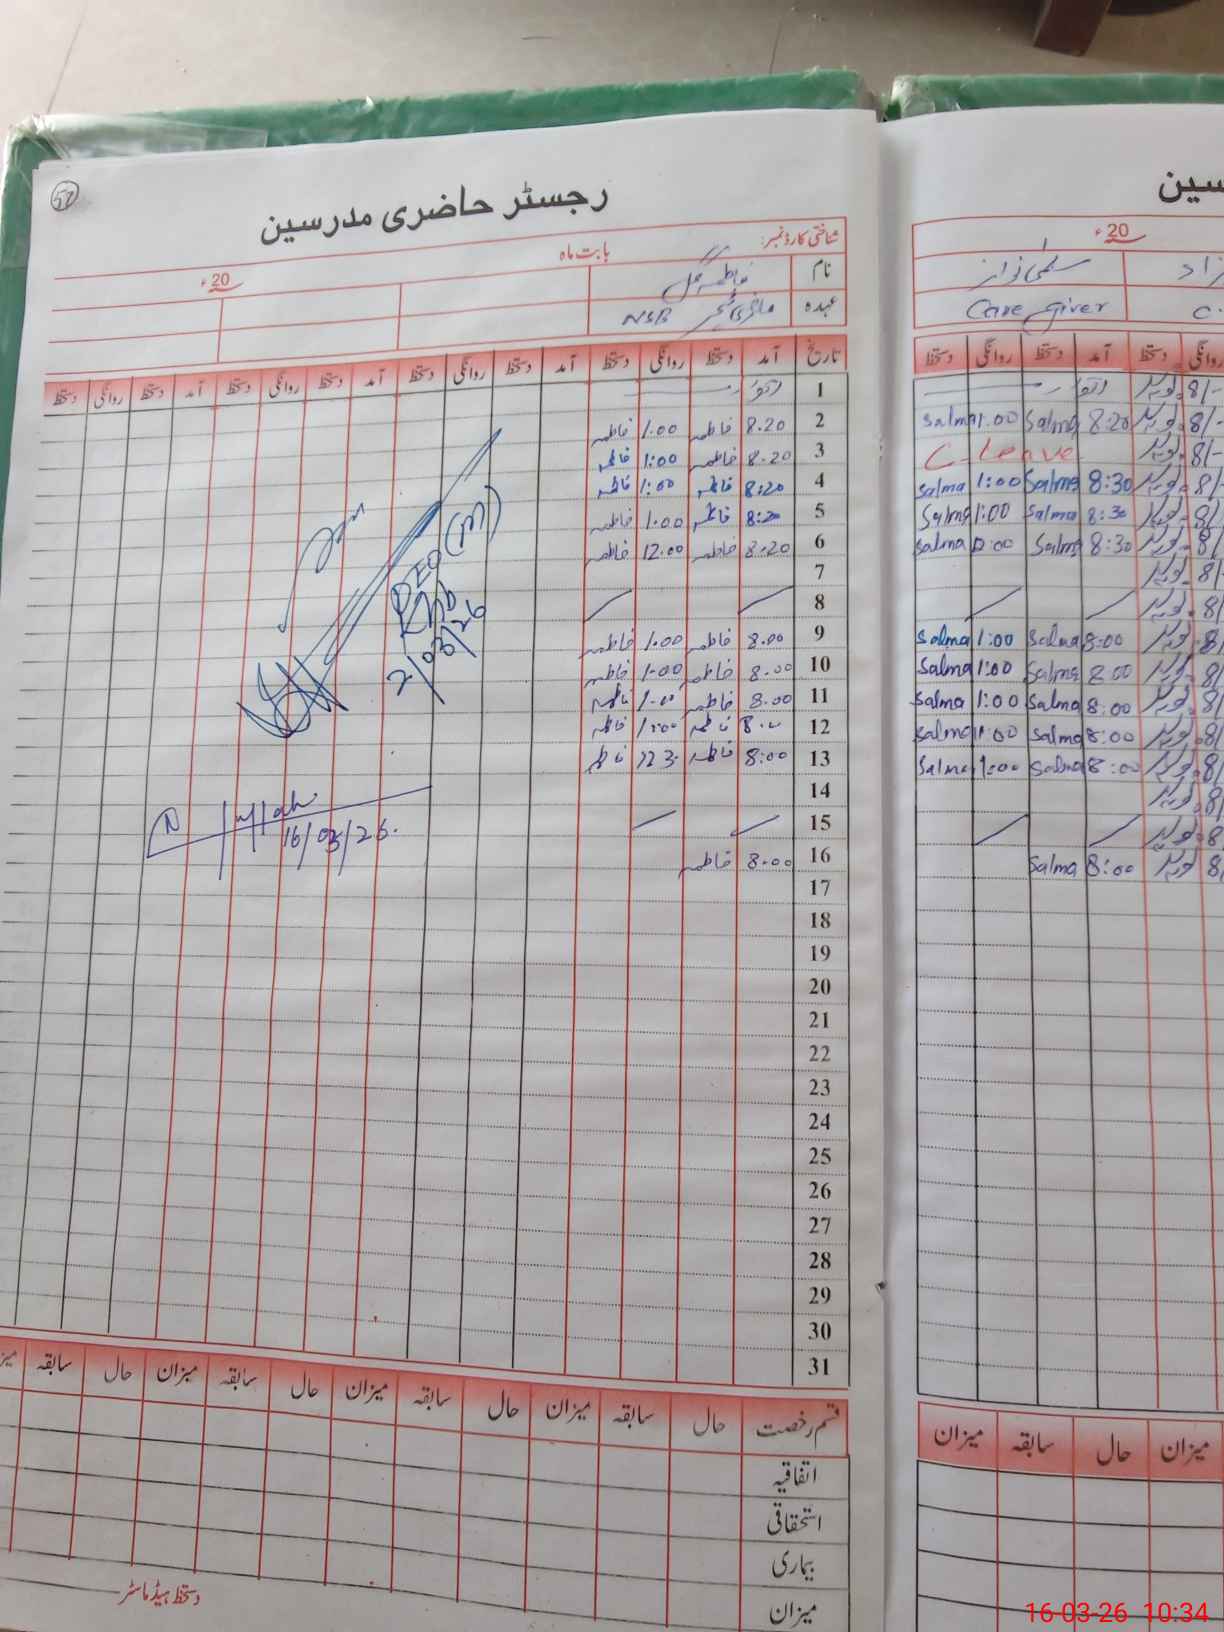 52
رجسٹر حاضری مدرسین
شناختی کارڈ نمبر:
بابت ماہ
20ء
نام فاطمہ گل
عہدہ NSB
تاریخ آمد دستخط روانگی دستخط آمد دستخط روانگی دستخط آمد دستخط روانگی دستخط آمد دستخط روانگی دستخط
1 اتوار
2 8.20 فاطمہ 1:00 فاطمہ
3 8.20 فاطمہ 1:00 فاطمہ
4 8:20 فاطمہ 1:00 فاطمہ
5 8:20 فاطمہ 1:00 فاطمہ
6 8.20 فاطمہ 12.00 فاطمہ
7
8
9 8.00 فاطمہ 1:00 فاطمہ
10 8.00 فاطمہ 1:00 فاطمہ
11 8.00 فاطمہ 1:00 فاطمہ
12 فاطمہ 1:00 فاطمہ
13 8:00 فاطمہ فاطمہ
14
15
16 8.00 فاطمہ
17
18
19
20
21
22
23
24
25
26
27
28
29
30
31
DEO (M)
2/03/26
16/03/26.
قسم رخصت حال سابقہ میزان حال سابقہ میزان حال سابقہ میزان حال سابقہ
اتفاقیہ
استحقاقی
بیماری
میزان
دستخط ہیڈ ماسٹر
20ء
سلمیٰ نواز
Care giver
روانگی دستخط آمد دستخط روانگی دستخط
8/- اتوار
8/- 8:20 Salma 1:00 Salma
8/- C. leave
8/- 8:30 Salma 1:00 Salma
8/- 8:30 Salma 1:00 Salma
8/- 8:30 Salma Salma
8/-
8/-
8/- 8:00 Salma 1:00 Salma
8/- 8:00 Salma 1:00 Salma
8/- 8:00 Salma 1:00 Salma
8/- 8:00 Salma 1:00 Salma
8/- 8:00 Salma 1:00 Salma
8/
8/
8/ 8:00 Salma
میزان حال سابقہ میزان
16-03-26 10:34